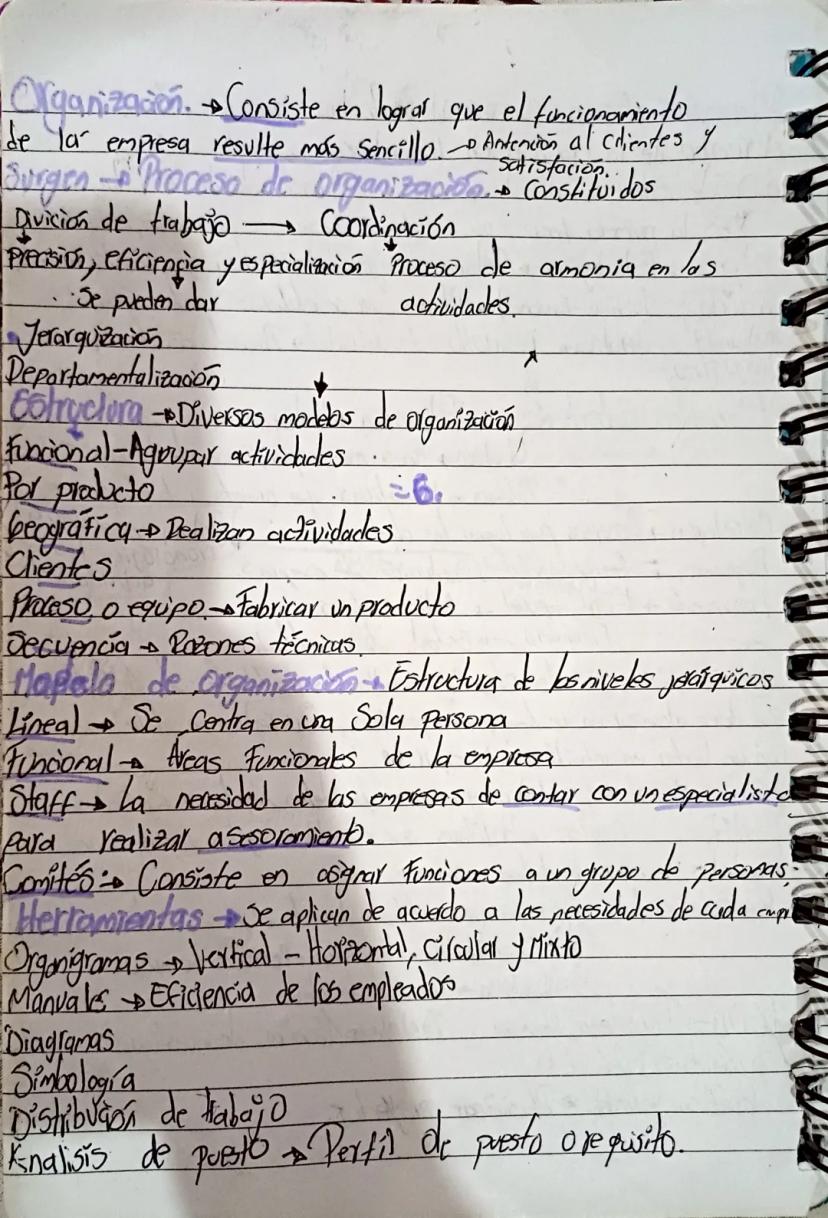 Organización. → Consiste en lograr que el funcionamiento
de la empresa resulte más sencillo. → Antención al clientes y
satisfación.
Surgen → Proceso de organización. → Constituidos
Divición de trabajo → Coordinación
Precisión, eficiencia y especialización Proceso de armonia en las
Se pueden dar actividades.
Jerarquización
Departamentalización
Estructura → Diversos modelos de organización
Funcional - Agrupar actividades
Por producto = 6.
Geográfica → Realizan actividades
Clientes
Proceso o equipo. → Fabricar un producto
Secuencia → Razones técnicas.
de organización → Estructura de los niveles jerárquicos
Lineal → Se Centra en una Sola Persona
Funcional → Áreas Funcionales de la empresa
Staff → La necesidad de las empresas de contar con un especialista
para realizar asesoramiento.
Comités: → Consiste en asignar Funciones a un grupo de personas.
Herramientas → Se aplican de acuerdo a las necesidades de cada
Organigramas → Vertical - Horizontal, Circular y Mixto
Manuales → Eficiencia de los empleados
Diagramas
Simbología
Distribución de trabajo
Analisis de puesto → Perfil de puesto o requisito.